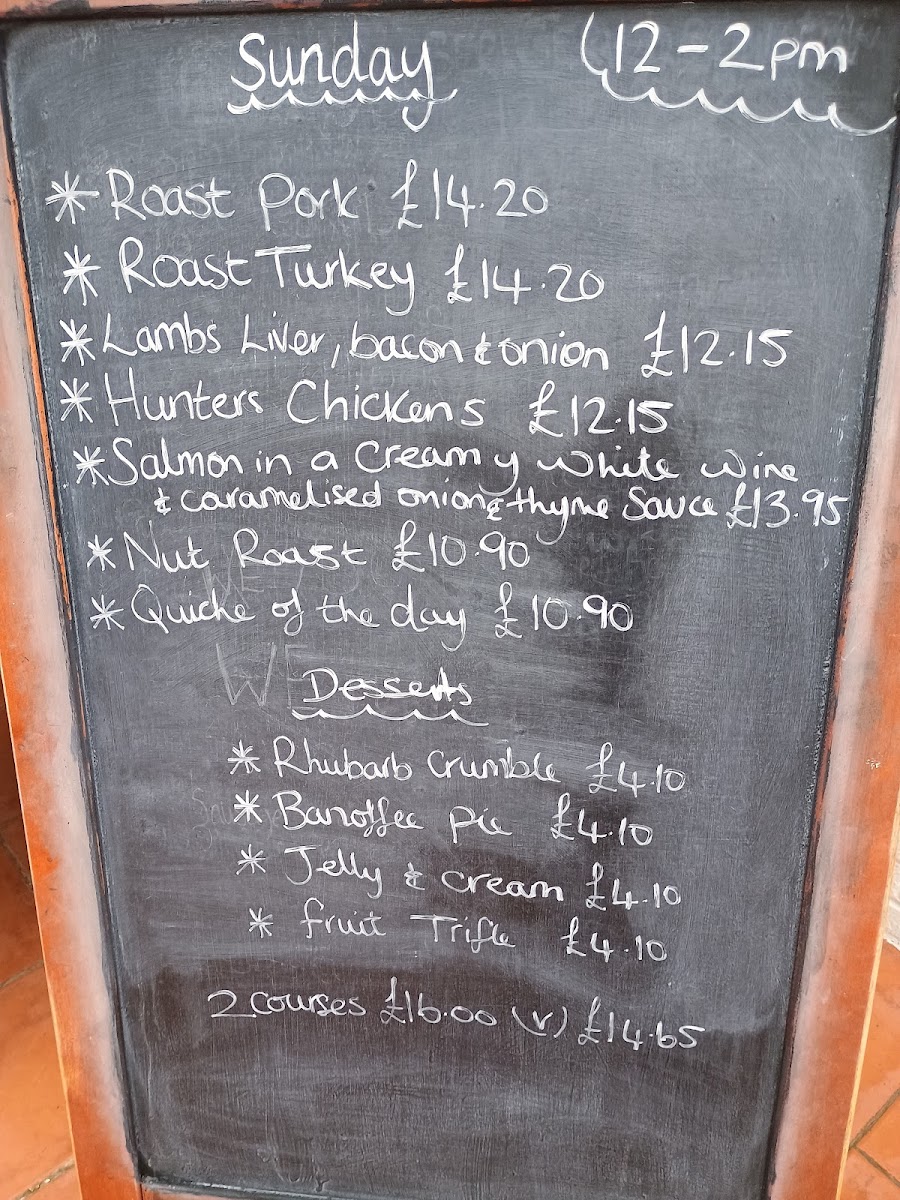 Sunday (12-2pm
* Roast Pork £14.20
* Roast Turkey £14.20
* Lambs Liver, bacon & onion £12.15
* Hunters Chickens £12.15
* Salmon in a Creamy White Wine
& caramelised onion & thyme Sauce £13.95
* Nut Roast £10.90
* Quiche of the day £10.90
WE
Desserts
* Rhubarb Crumble £4.10
* Banoffee Pie £4.10
* Jelly & cream £4.10
* fruit Trifle £4.10
2 courses £16.00 (v) £14.65